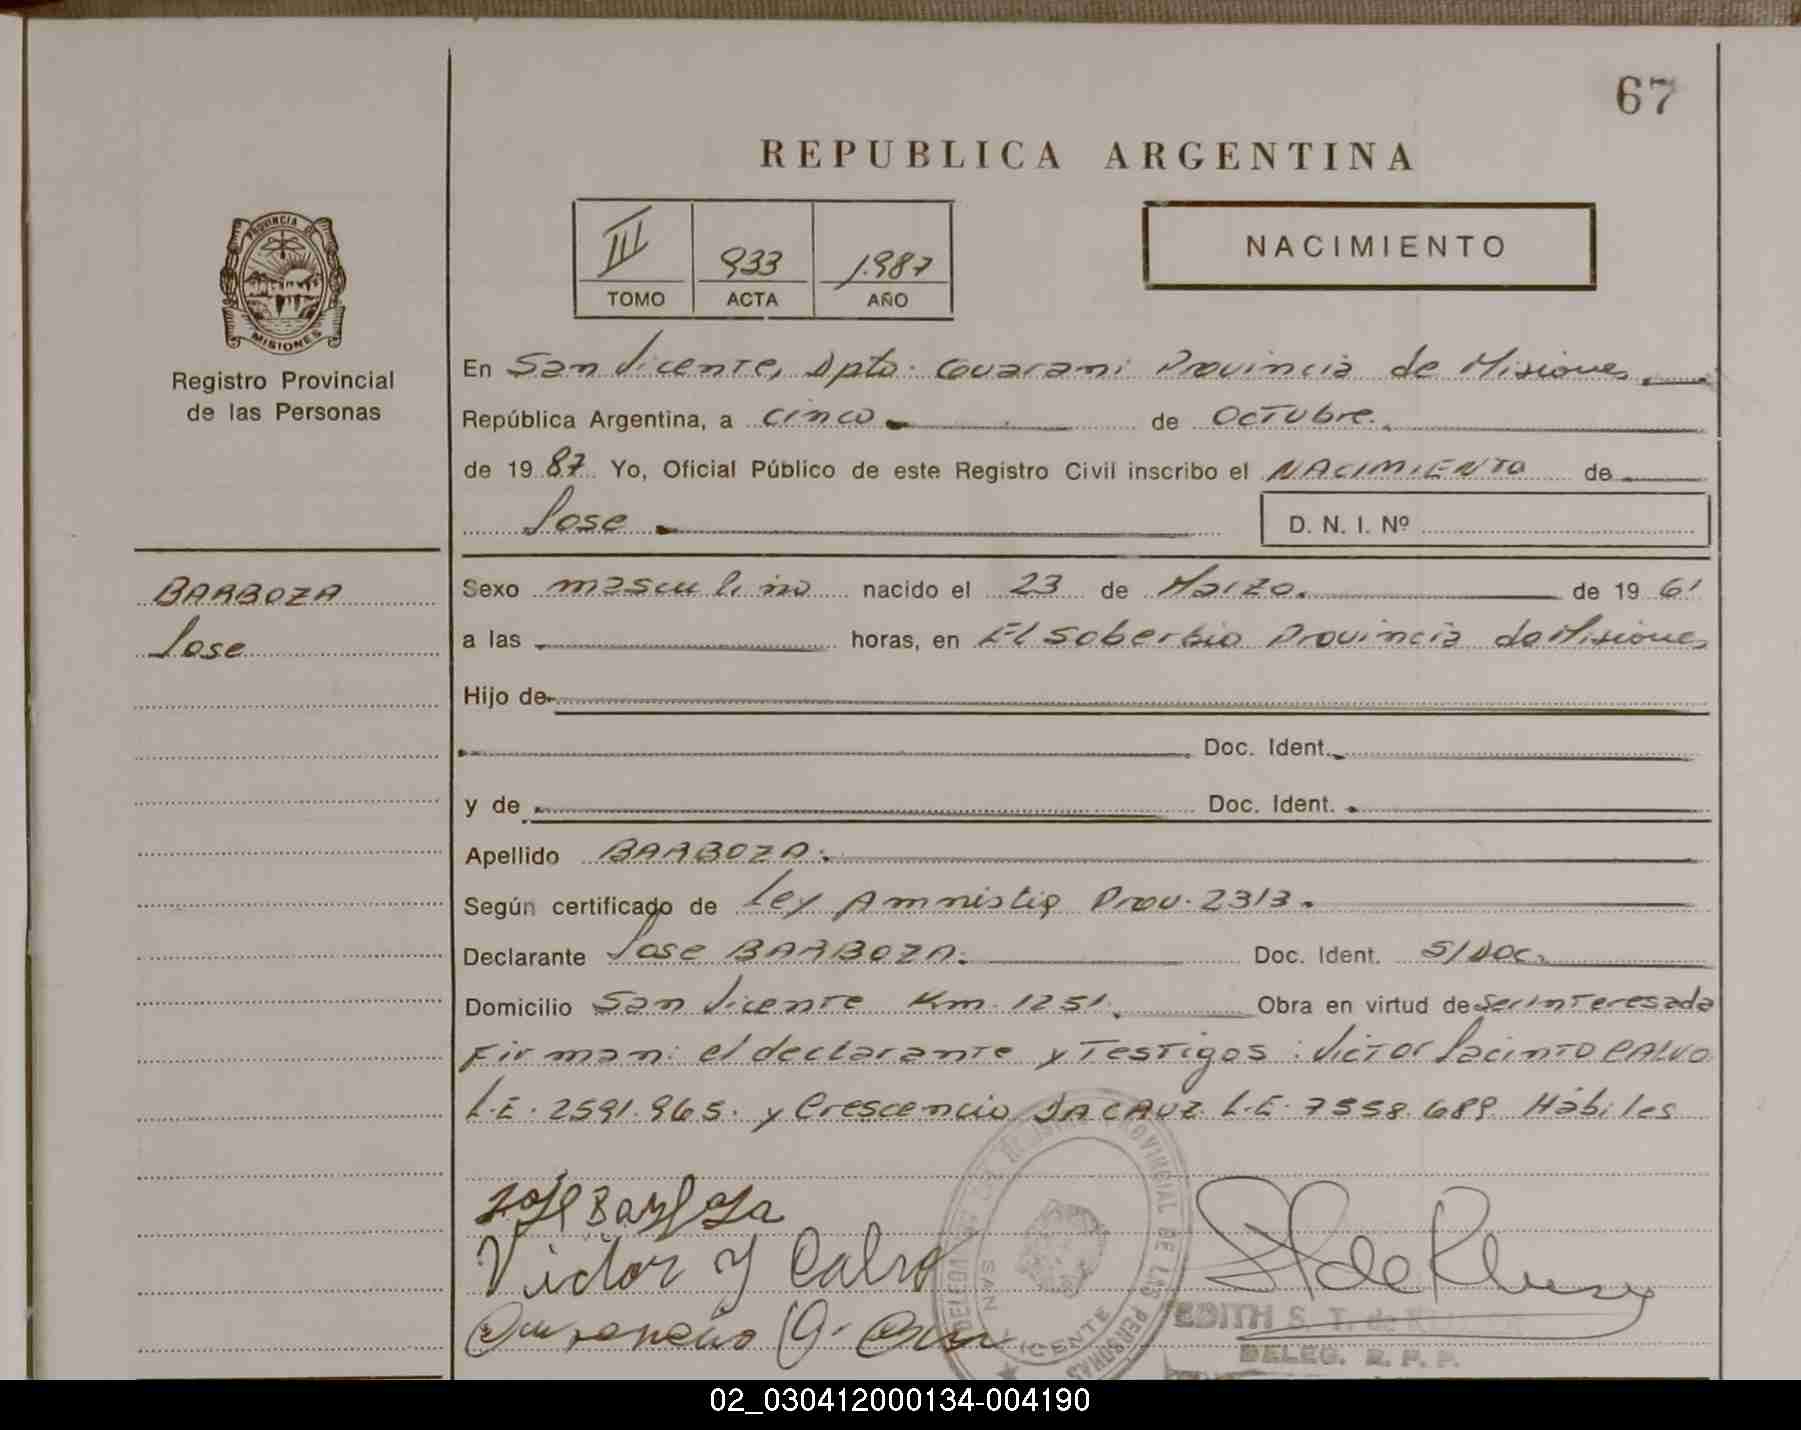 67
REPUBLICA ARGENTINA
III 933 1.987
TOMO ACTA AÑO
NACIMIENTO
PROVINCIA DE MISIONES
Registro Provincial
de las Personas
En San Vicente, Dpto. Guarani Provincia de Misiones.
República Argentina, a cinco de Octubre.
de 19 87 Yo, Oficial Público de este Registro Civil inscribo el NACIMIENTO de
Jose D. N. I. Nº
BARBOZA
Jose
Sexo masculino nacido el 23 de Marzo. de 19 61
a las horas, en El Soberbio Provincia de Misiones
Hijo de
Doc. Ident.
y de Doc. Ident.
Apellido BARBOZA.
Según certificado de Ley Amnistia Prov. 2313.
Declarante Jose BARBOZA. Doc. Ident. S/DOC.
Domicilio San Vicente Km. 1251. Obra en virtud de ser interesada
Firman: el declarante y Testigos: Victor Jacinto CALVO
L.E. 2591.965. y Crescencio L.E. 7558.689 Hábiles
Jose Barboza
Victor Y Calvo
PROVINCIAL DE LAS PERSONAS
SAN VICENTE
EDITH S. T. de
DELEG. R. P. P.
02_030412000134-004190